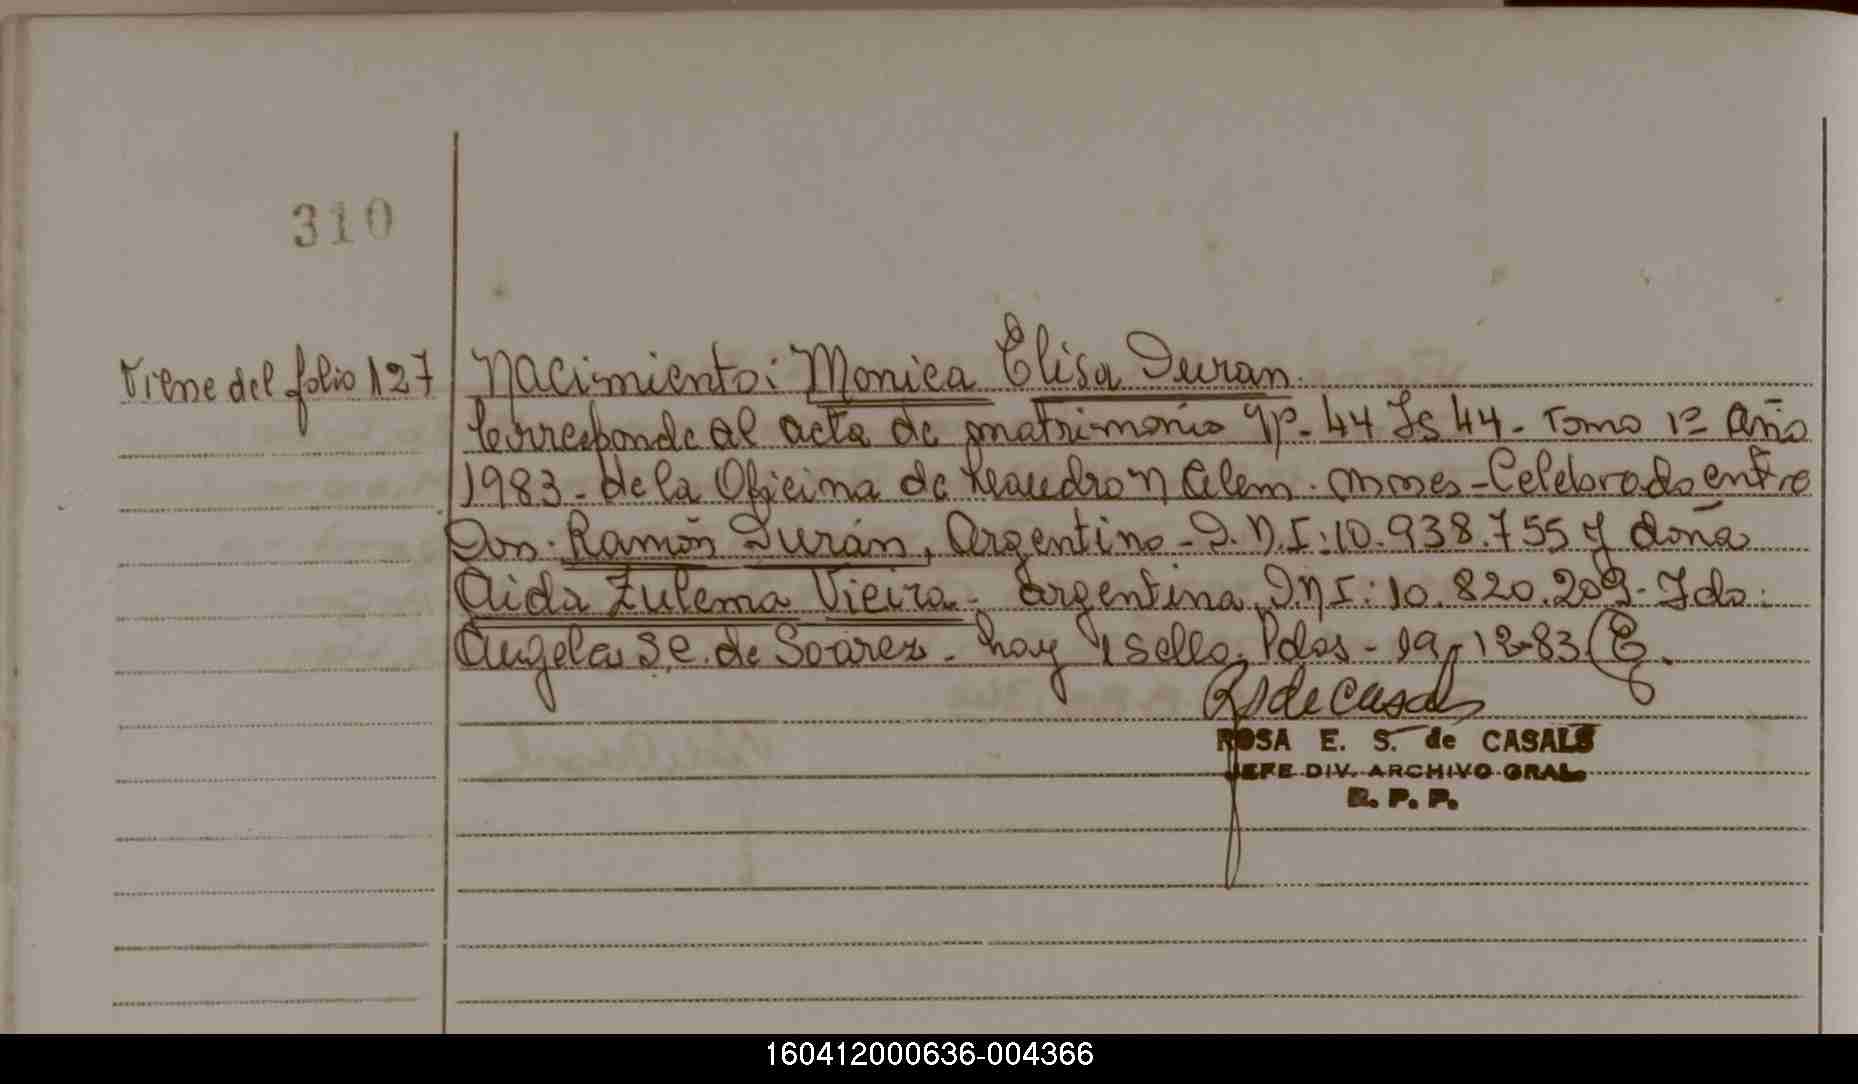 310
Viene del folio 127
Nacimiento: Monica Elisa Duran.
Corresponde al acta de matrimonio Nº- 44 Fs 44- Tomo 1º Año
1983- de la Oficina de Leandro N Alem. Mnes- Celebrado entre
Don. Ramón Durán, Argentino- D.N.I: 10.938.755 y doña
Aida Zulema Vieira. Argentina, D.N.I: 10.820.209- Fdo.
Angela S.C. de Soarez- hay 1 sello. Pdas- 19-12-83
RS de Casals
ROSA E. S. de CASALS
JEFE DIV. ARCHIVO GRAL.
R. P. P.
160412000636-004366